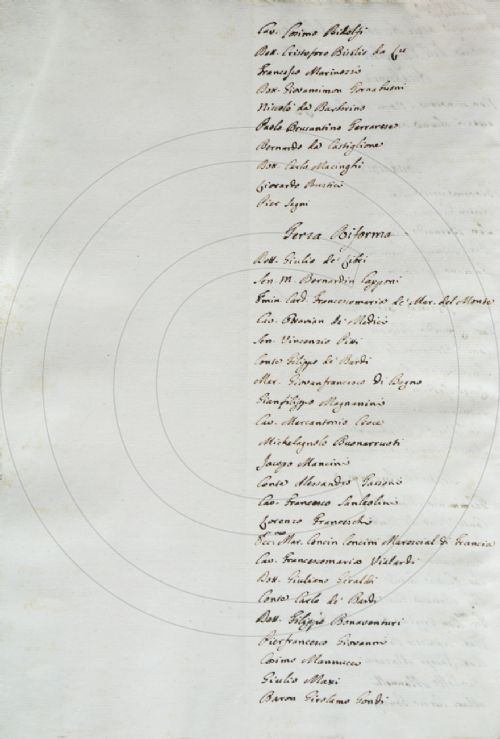 Cav. Cosimo Ridolfi
Dott. Cristoforo
Francesco Marinozzi
Dott. Giovansimon Tornabuoni
Niccolò da Barbrino
Paolo Brusantino Ferrarese
Bernardo da Castiglione
Dott. Carlo Macinghi
Gherardo Rustici
Pier Segni
Terza Riforma
Dott. Giulio de' Libri
Sen. M. Bernardin Capponi
Emin. Card. Francescomaria de' Mar. del Monte
Cav. Ottavian de' Medici
Sen. Vincenzio Pitti
Conte Filippo de' Bardi
Mar. Giovanfrancesco di Bagno
Gianfilippo Magnanini
Cav. Marcantonio
Michelagnolo Buonarruoti
Jacopo Mancini
Conte Alessandro
Cav. Francesco Sanleolini
Lorenzo Franceschi
Ecc.mo Mar. Concin Concini Marescial di Francia
Cav. Francescomaria Vialardi
Dott. Giuliano Giraldi
Conte Carlo de' Bardi
Dott. Filippo Bonaventuri
Pierfrancesco Giovanni
Cosimo Mannucci
Giulio Mazzi
Baron Girolamo Gondi